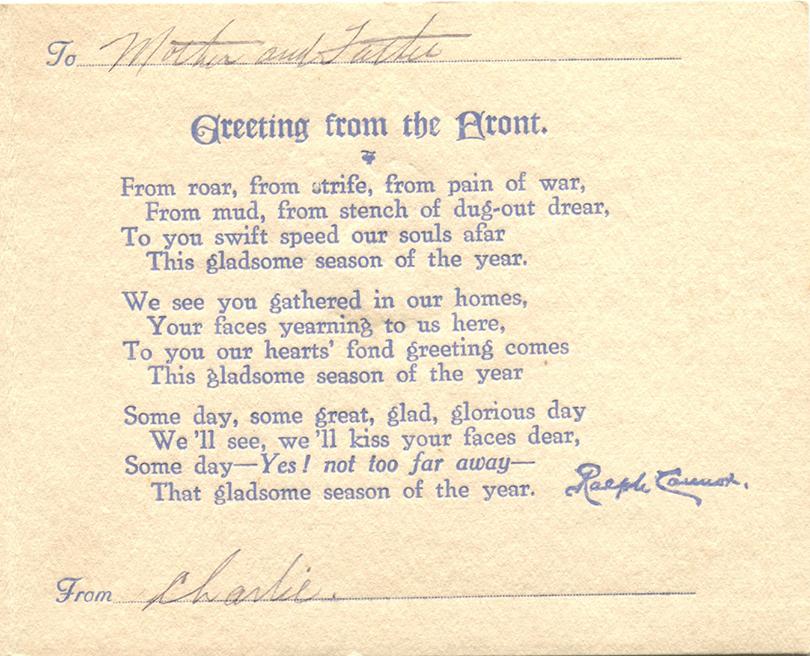 To Mother and Father
Greeting from the Front.
From roar, from strife, from pain of war,
From mud, from stench of dug-out drear,
To you swift speed our souls afar
This gladsome season of the year.
We see you gathered in our homes,
Your faces yearning to us here,
To you our hearts' fond greeting comes
This gladsome season of the year
Some day, some great, glad, glorious day
We'll see, we'll kiss your faces dear,
Some day—Yes! not too far away—
That gladsome season of the year.
Ralph Connor.
From Charlie.